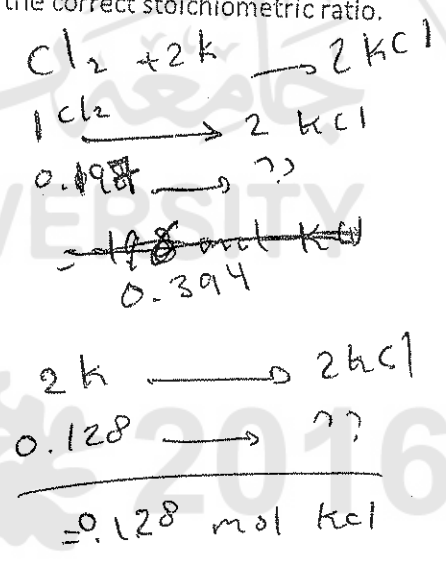 the correct stoichiometric ratio.
Cl2 + 2k → 2 KCl
1 Cl2 → 2 KCl
→ ??
0.394
2k → 2kCl
0.128 → ??
=0.128 mol kcl
جامعة
VERSITY
2016